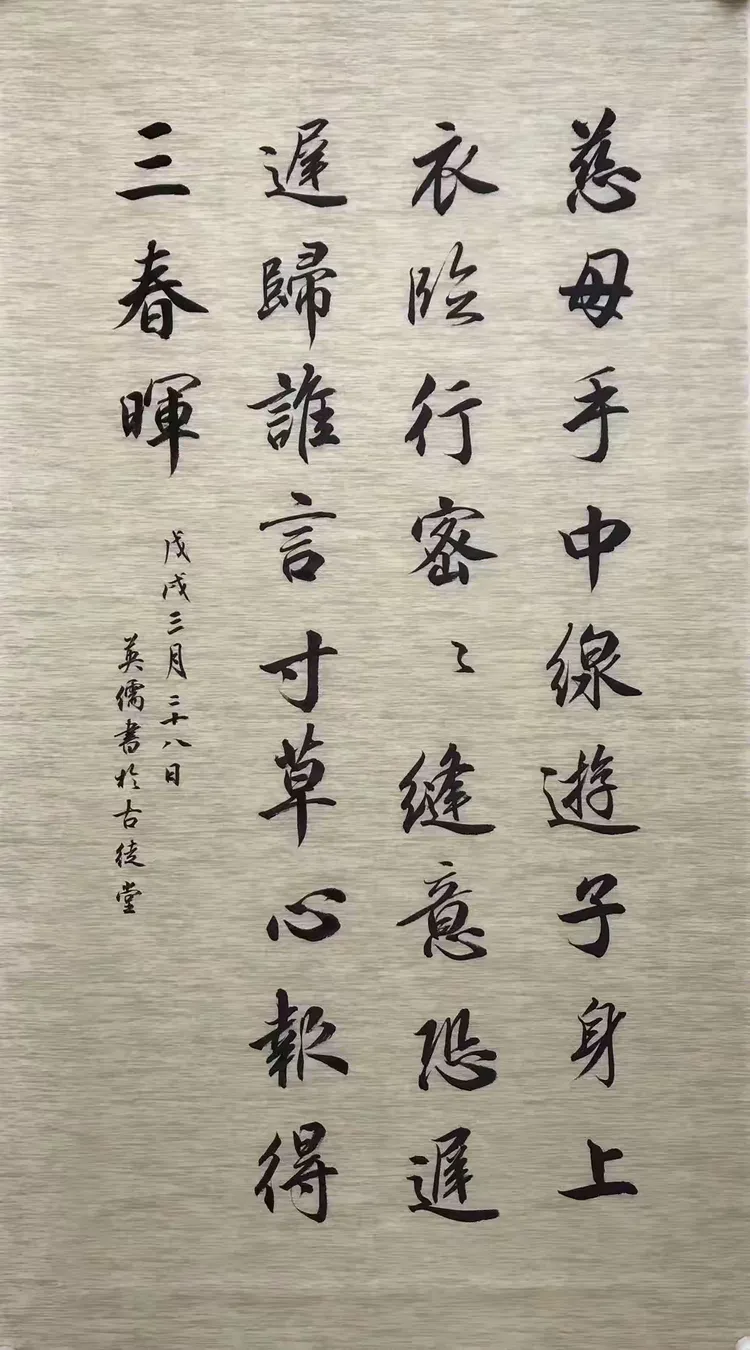 慈母手中線遊子身上
衣臨行密〻縫意恐遲
遲歸誰言寸草心報得
三春暉
戊戌三月二十八日
英儒書於古徒堂